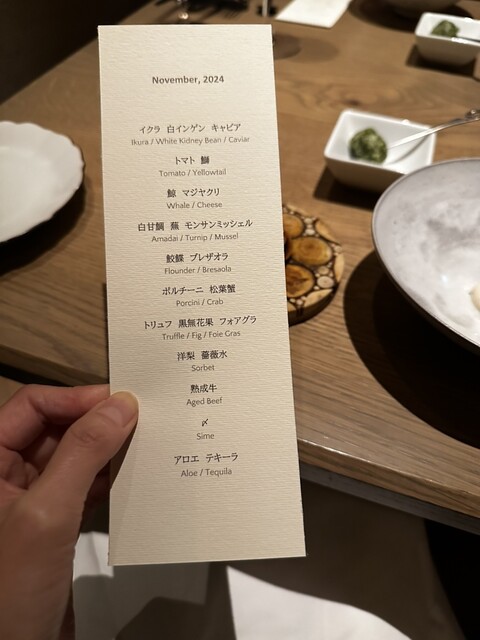 November, 2024
イクラ 白インゲン キャビア
Ikura / White Kidney Bean / Caviar
トマト 鰤
Tomato / Yellowtail
鯨 マジヤクリ
Whale / Cheese
白甘鯛 蕪 モンサンミッシェル
Amadai / Turnip / Mussel
鮫鰈 ブレザオラ
Flounder / Bresaola
ポルチーニ 松葉蟹
Porcini / Crab
トリュフ 黒無花果 フォアグラ
Truffle / Fig / Foie Gras
洋梨 薔薇水
Sorbet
熟成牛
Aged Beef
〆
Sime
アロエ テキーラ
Aloe / Tequila